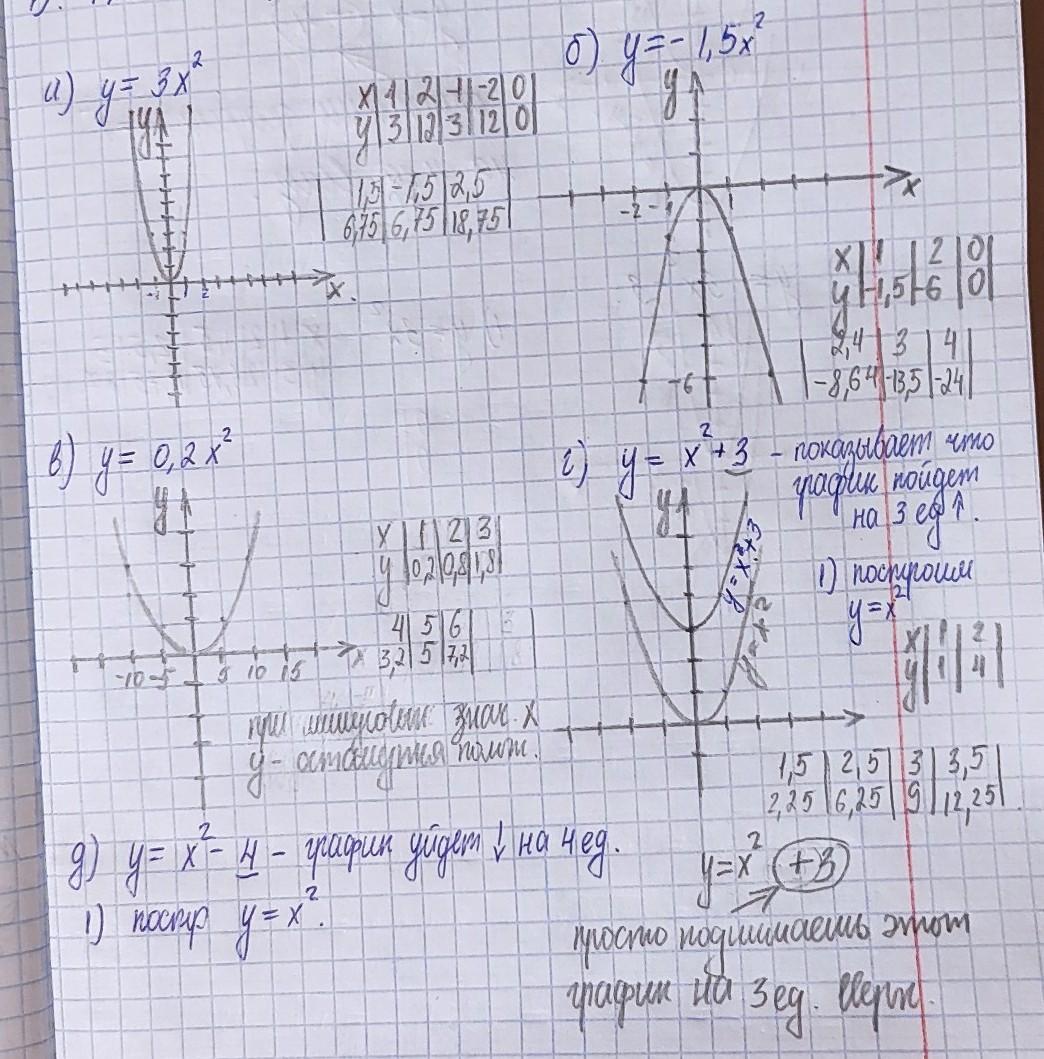 а) y = 3x²
y
x 1 2 -1 -2 0
y 3 12 3 12 0
1,5 -1,5 2,5
6,75 6,75 18,75
-1 1 2
x
б) y = -1,5x²
y
-2 -1 1
x
-6
x 1 2 0
y -1,5 -6 0
2,4 3 4
-8,64 -13,5 -24
в) y = 0,2x²
y
x 1 2 3
y 0,2 0,8 1,8
4 5 6
3,2 5 7,2
-10 -5 5 10 15
x
при минусовых знак. x
y - останутся полож.
г) y = x² + 3 - показывает что
график пойдет
на 3 ед ↑.
y
y = x²
1) построим
y = x²
x 1 2
y 1 4
1,5 2,5 3 3,5
2,25 6,25 9 12,25
y = x² +3
просто поднимаешь этот
график на 3 ед. вверх.
д) y = x² - 4 - график уйдет ↓ на 4 ед.
1) постр y = x².